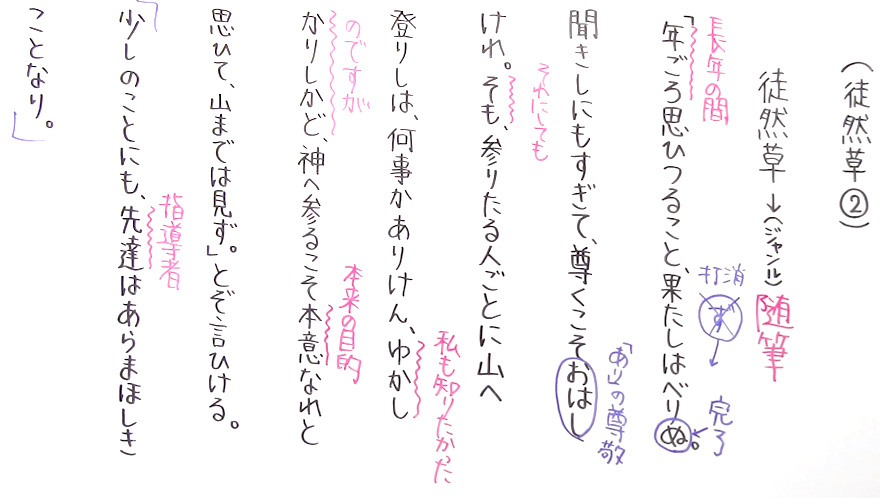 (徒然草②)
徒然草→(ジャンル)随筆
長年の間
打消
ず
完了
「年ごろ思ひつること、果たしはべりぬ。
「あり」の尊敬
聞きしにもすぎて、尊くこそおはし
それにしても
けれ。そも、参りたる人ごとに山へ
私も知りたかった
登りしは、何事かありけん、ゆかし
のですが
本来の目的
かりしかど、神へ参るこそ本意なれと
思ひて、山までは見ず。」とぞ言ひける。
指導者
「少しのことにも、先達はあらまほしき
ことなり。」